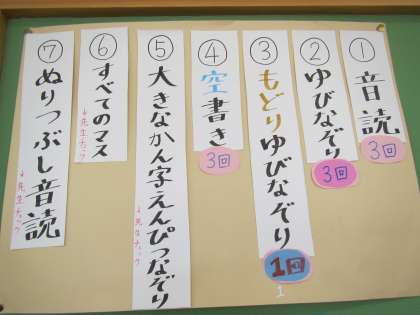 ①音読
3回
②ゆびなぞり
3回
③もどりゆびなぞり
1回
1
④空書き
3回
⑤大きなかん字えんぴつなぞり
↓先生チェック
⑥すべてのマス
↓先生チェック
⑦ぬりつぶし音読
↓先生チェック